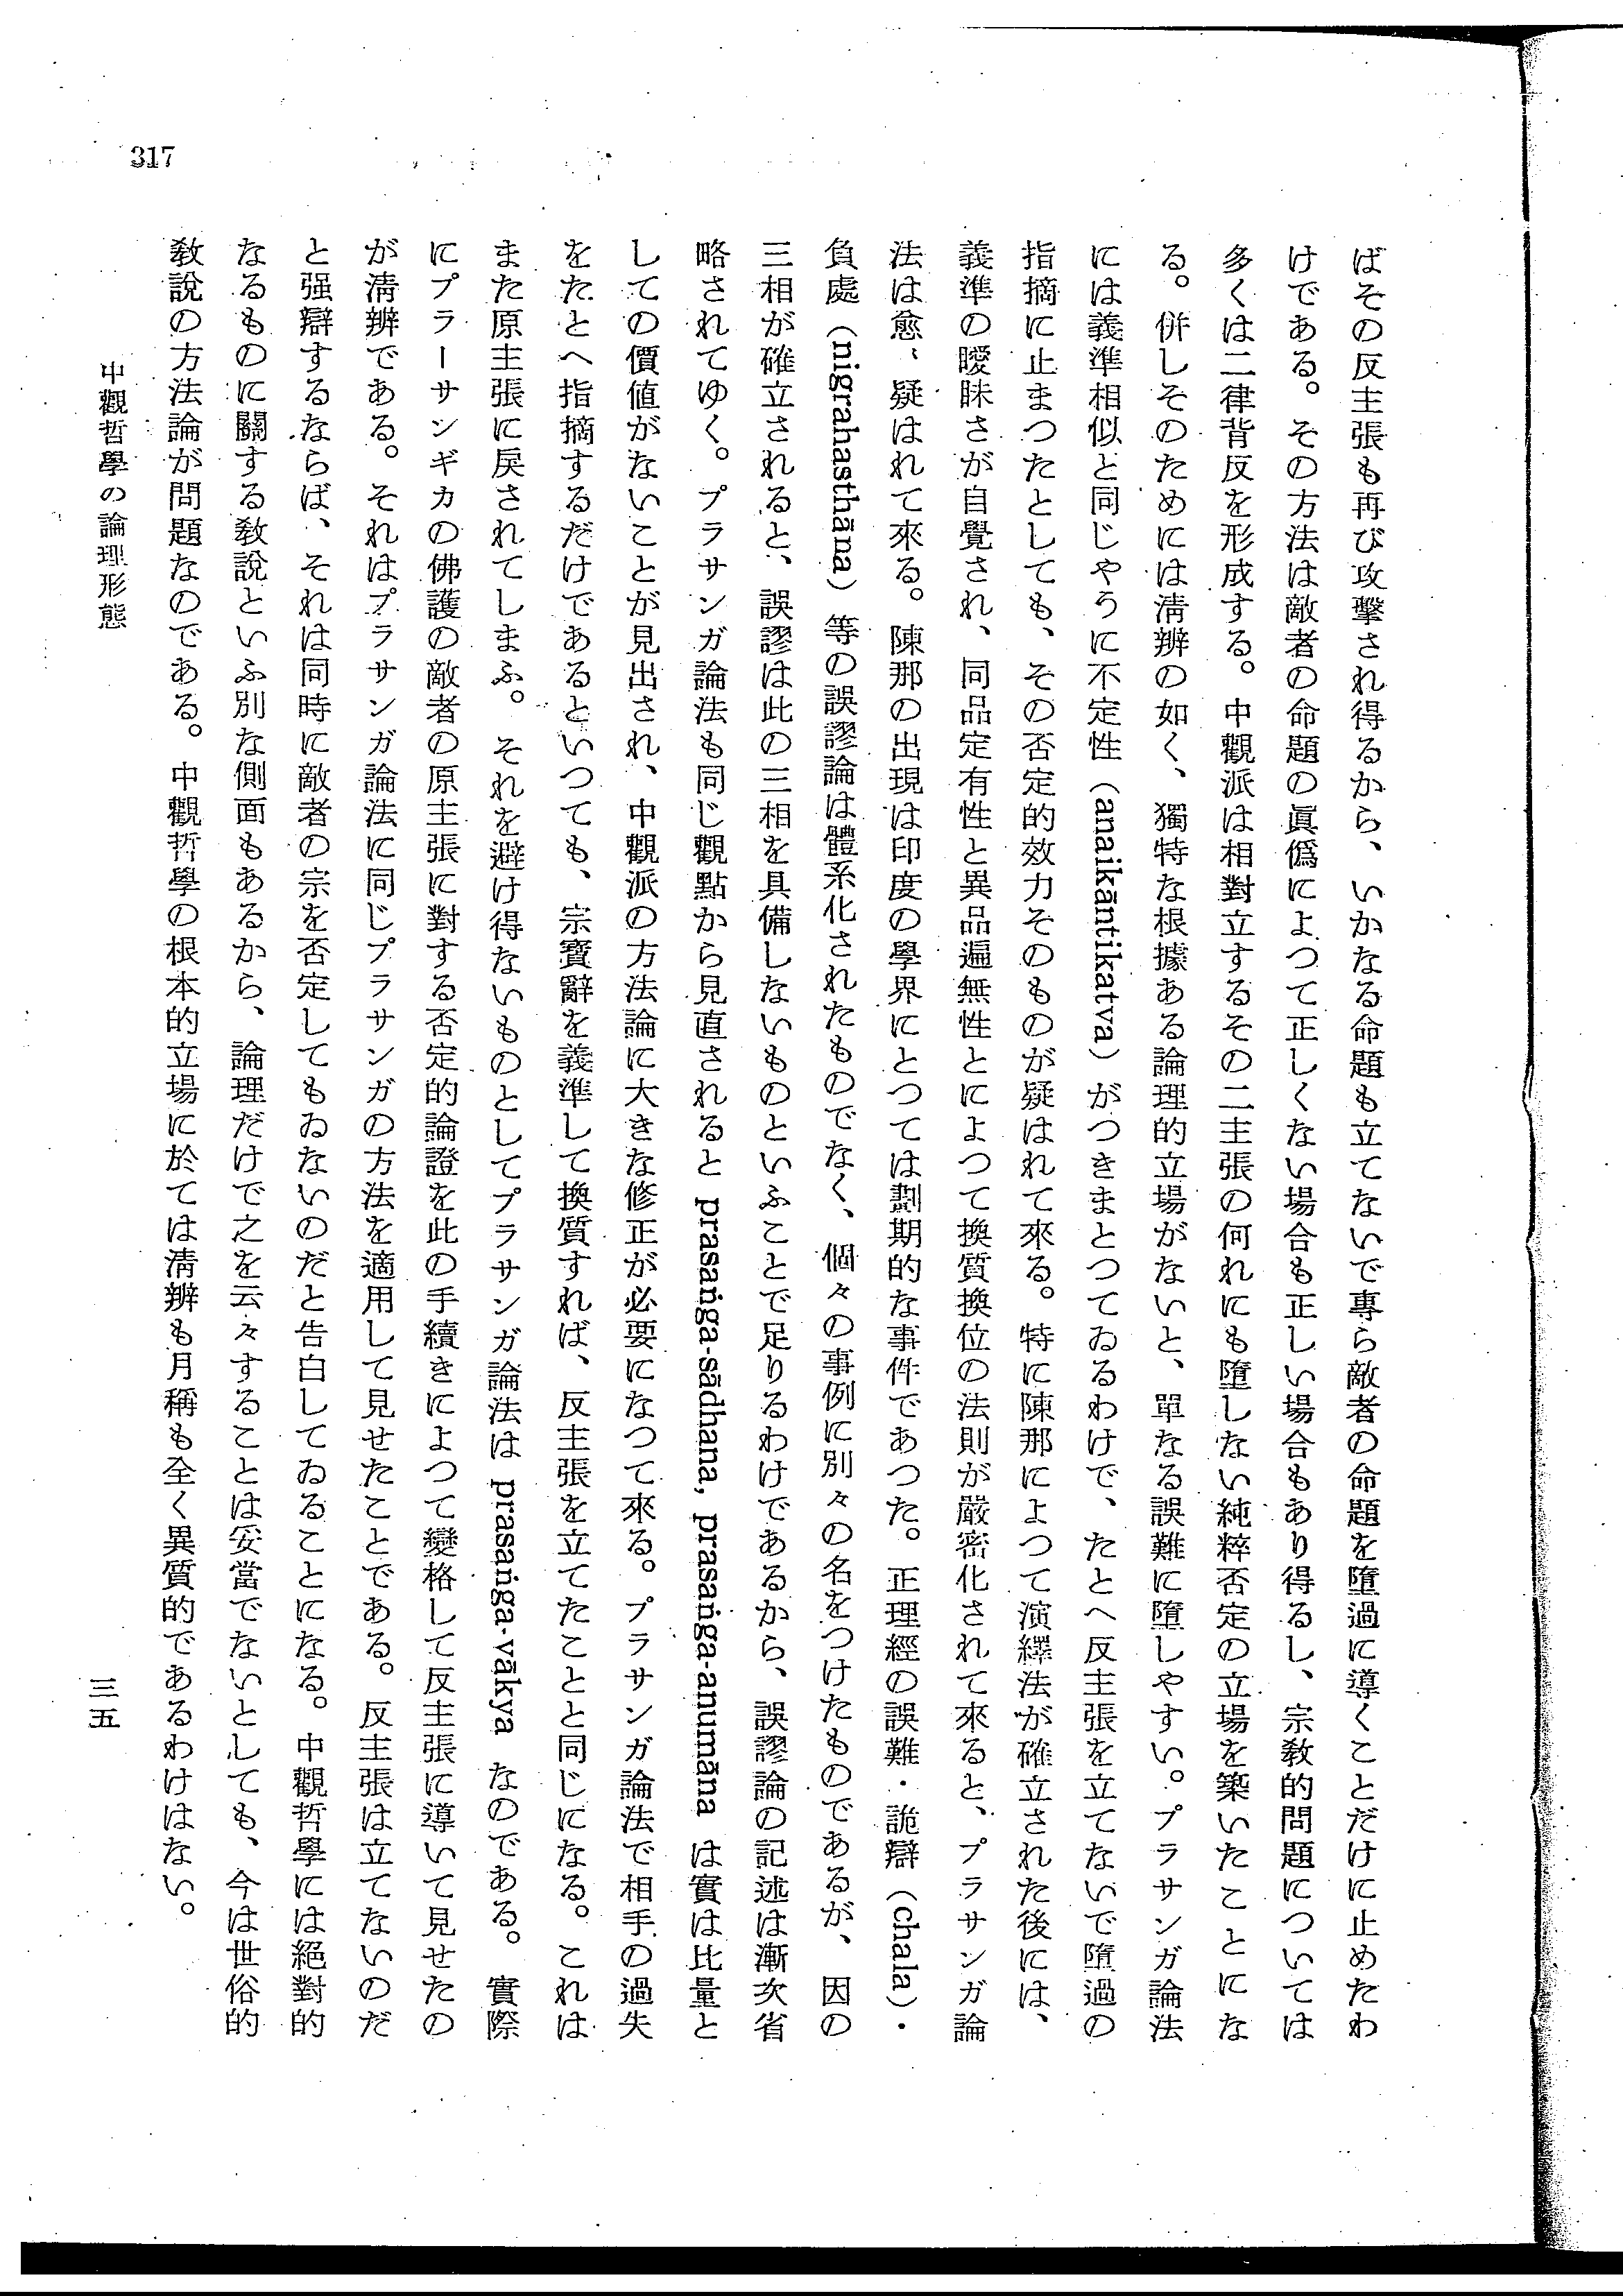 ばその反主張も再び攻擊され得るから、いかなる命題も立てないで專ら敵者の命題を墮過に導くことだけに止めたわ
けである。その方法は敵者の命題の眞僞によつて正しくない場合も正しい場合もあり得るし、宗教的問題については
多くは二律背反を形成する。中觀派は相對立するその二主張の何れにも墮しない純粹否定の立場を築いたことにな
る。併しそのためには淸辨の如く、獨特な根據ある論理的立場がないと、單なる誤難に墮しやすい。プラサンガ論法
には義準相似と同じやうに不定性（anaikāntikatva）がつきまとつてゐるわけで、たとへ反主張を立てないで墮過の
指摘に止まつたとしても、その否定的效力そのものが疑はれて來る。特に陳那によつて演繹法が確立された後には、
義準の曖昧さが自覺され、同品定有性と異品遍無性とによつて換質換位の法則が嚴密化されて來ると、プラサンガ論
法は愈〻疑はれて來る。陳那の出現は印度の學界にとつては劃期的な事件であつた。正理經の誤難・詭辯（chala）・
負處（nigrahasthāna）等の誤謬論は體系化されたものでなく、個々の事例に別々の名をつけたものであるが、因の
三相が確立されると、誤謬は此の三相を具備しないものといふことで足りるわけであるから、誤謬論の記述は漸次省
略されてゆく。プラサンガ論法も同じ觀點から見直されると prasaṅga-sādhana, prasaṅga-anumāna は實は比量と
しての價値がないことが見出され、中觀派の方法論に大きな修正が必要になつて來る。プラサンガ論法で相手の過失
をたとへ指摘するだけであるといつても、宗賓辭を義準して換質すれば、反主張を立てたことと同じになる。これは
また原主張に戾されてしまふ。それを避け得ないものとしてプラサンガ論法は prasaṅga-vākya なのである。實際
にプラーサンギカの佛護の敵者の原主張に對する否定的論證を此の手續きによつて變格して反主張に導いて見せたの
が淸辨である。それはプラサンガ論法に同じプラサンガの方法を適用して見せたことである。反主張は立てないのだ
と强辯するならば、それは同時に敵者の宗を否定してもゐないのだと告白してゐることになる。中觀哲學には絕對的
なるものに關する敎說といふ別な側面もあるから、論理だけで之を云々することは妥當でないとしても、今は世俗的
敎說の方法論が問題なのである。中觀哲學の根本的立場に於ては淸辨も月稱も全く異質的であるわけはない。
中觀哲學の論理形態
三五
317